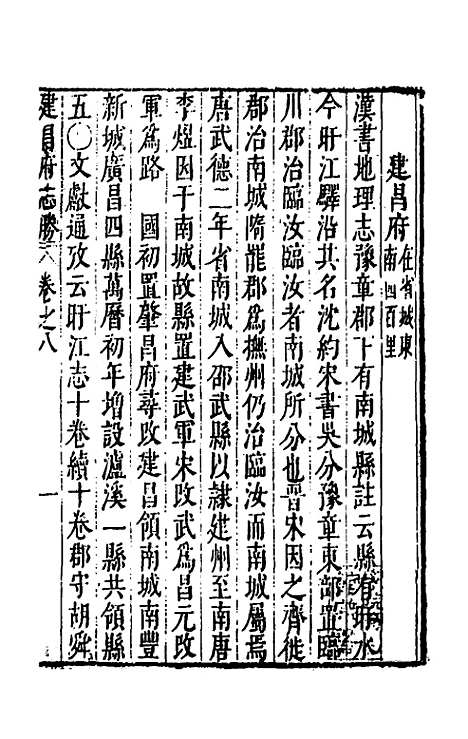 建昌府在省城東南四百里
漢書地理志豫章郡下有南城縣註云縣有旴水
今旴江驛沿其名沈約宋書吳分豫章東部置臨
川郡治臨汝臨汝者南城所分也晉宋因之齊徙
郡治南城隋罷郡爲撫州仍治臨汝而南城屬焉
唐武德二年省南城入邵武縣以隸建州至南唐
李煜因于南城故縣置建武軍宋改武爲昌元改
軍爲路 國初置肇昌府尋改建昌領南城南豐
新城廣昌四縣萬曆初年增設瀘溪一縣共領縣
五〇文獻通攷云旴江志十卷續十卷郡守胡舜
建昌府志勝 卷之八 一